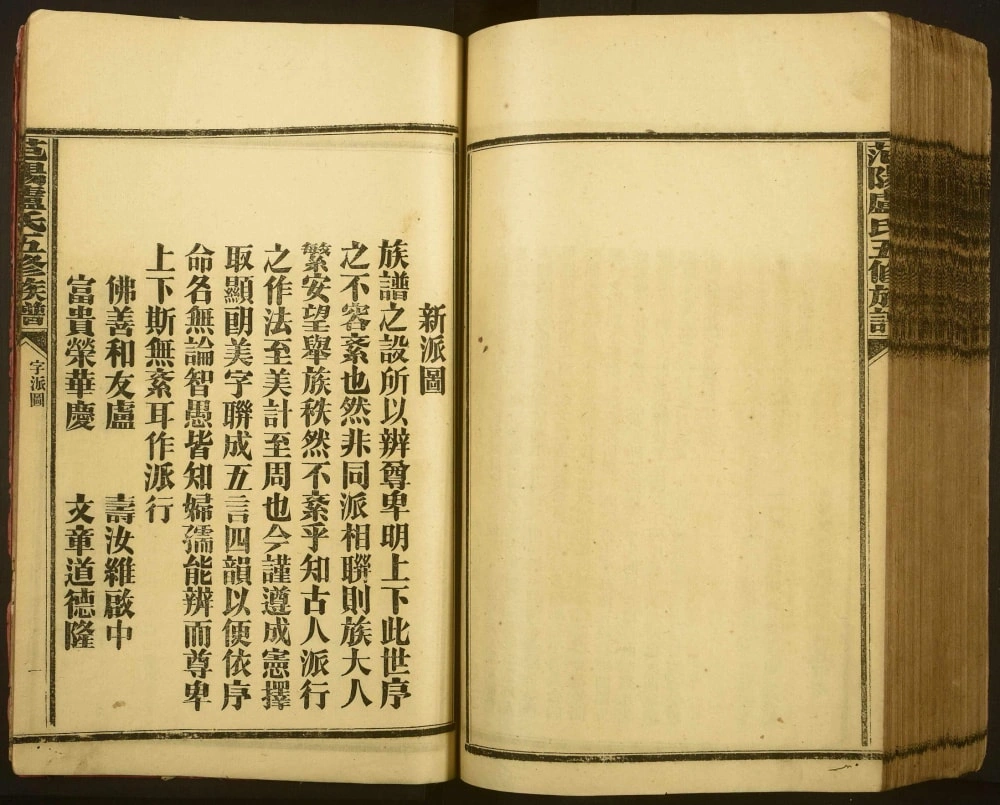 范陽盧氏五修族譜
新派圖
族譜之設所以辨尊卑明上下此世序
之不容紊也然非同派相聯則族大人
繁安望舉族秩然不紊乎知古人派行
之作法至美計至周也今謹遵成憲擇
取顯明美字聯成五言四韻以便依序
命名無論智愚皆知婦孺能辨而尊卑
上下斯無紊耳作派行
佛善和友盧　壽汝維啟中
富貴榮華慶　文章道德隆
范陽盧氏五修族譜
字派圖
一